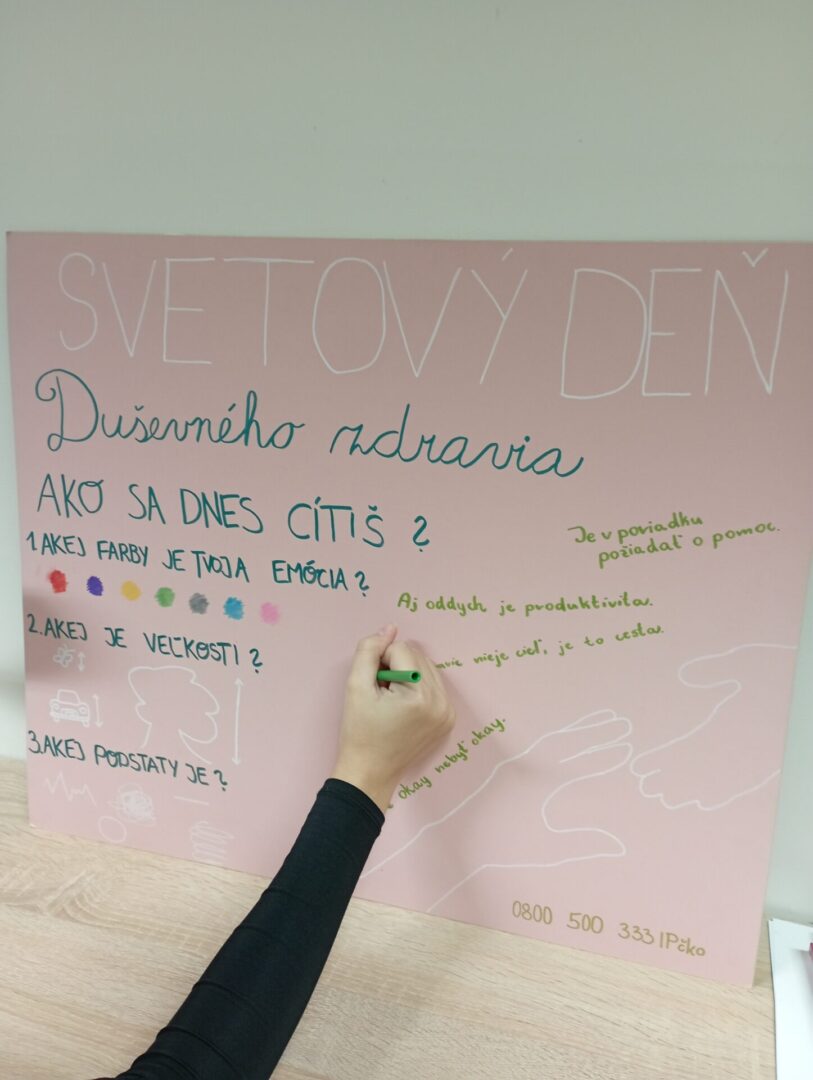 SVETOVÝ DEŇ
Duševného zdravia
AKO SA DNES CÍTIŠ ?
1. AKEJ FARBY JE TVOJA EMÓCIA ?
2. AKEJ JE VEĽKOSTI ?
3. AKEJ PODSTATY JE ?
Je v poriadku
požiadať o pomoc.
Aj oddych je produktivita.
nieje cieľ, je to cesta.
okay nebyť okay.
0800 500 333 IPčko